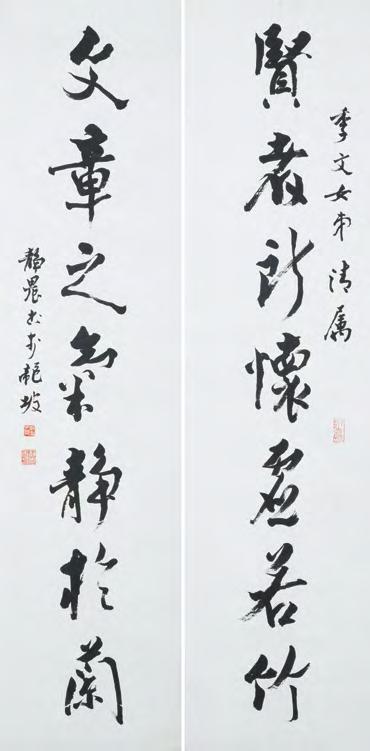 季文女弟 清屬
賢者所懷虛若竹
文章之氣靜於蘭
靜農書於龍坡